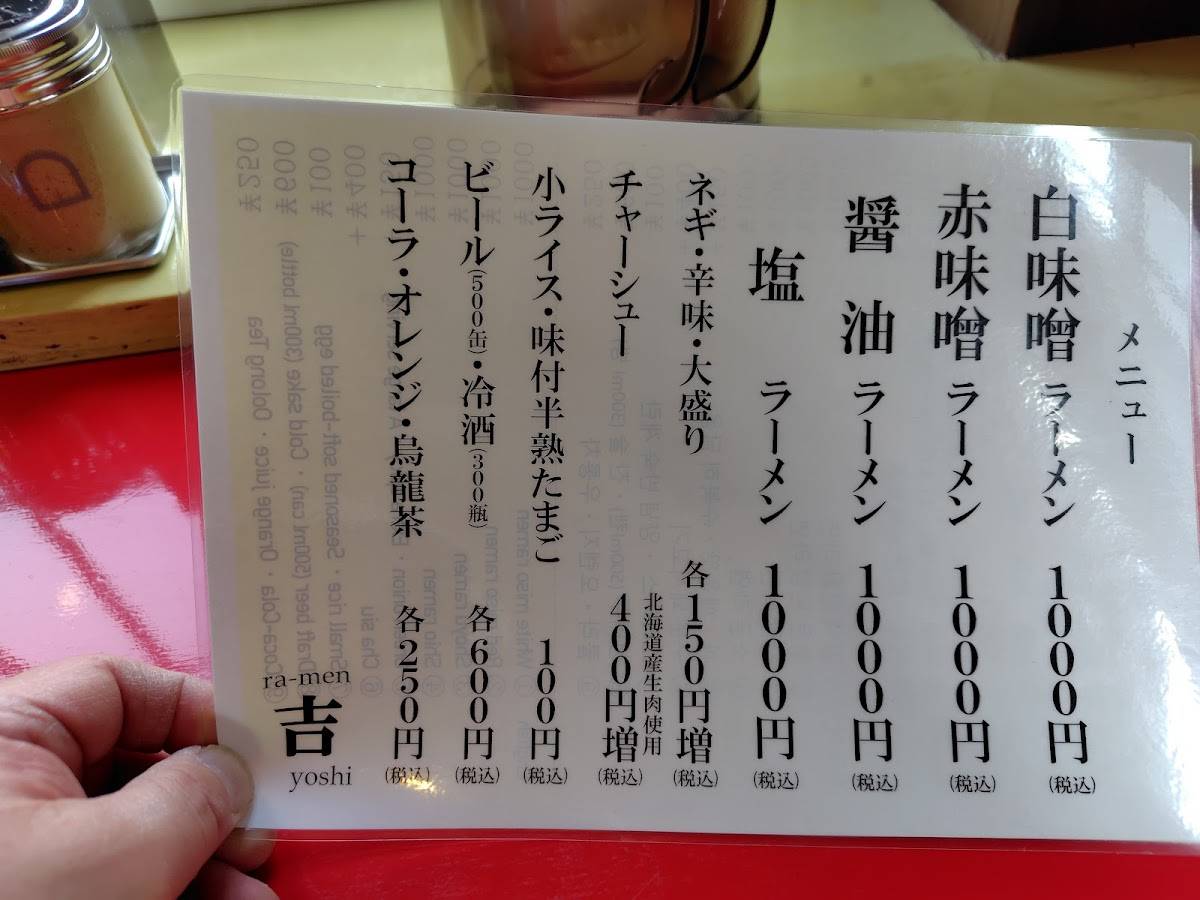 メニュー
白味噌ラーメン 1000円(税込)
赤味噌ラーメン 1000円(税込)
醤油ラーメン 1000円(税込)
塩ラーメン 1000円(税込)
ネギ・辛味・大盛り 各150円増(税込)
北海道産生肉使用
チャーシュー 400円増(税込)
小ライス・味付半熟たまご 100円(税込)
ビール(500缶)・冷酒(300瓶) 各600円(税込)
コーラ・オレンジ・烏龍茶 各250円(税込)
ra-men
吉
yoshi